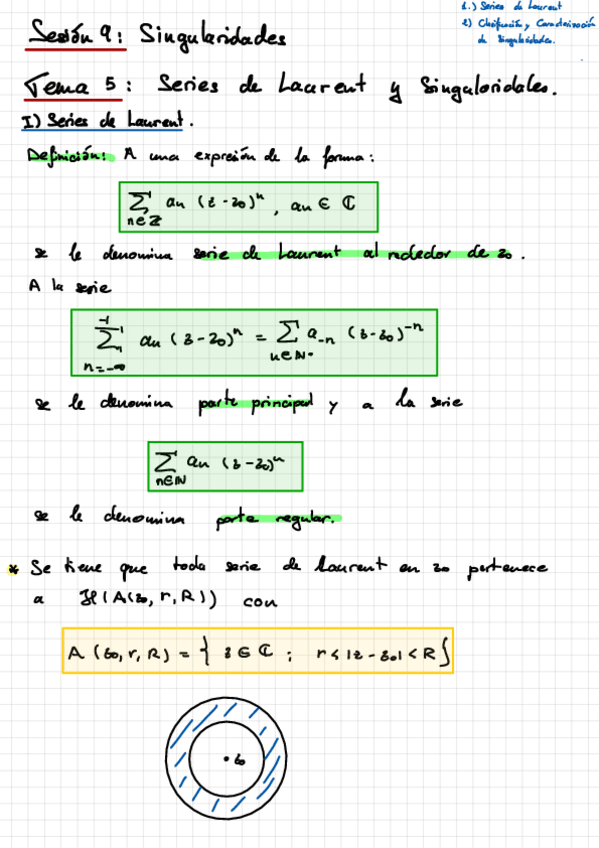 1.) Series de Laurent
2) Clasificación y Caracterización
de Singularidades.
Sesión 9: Singularidades
Tema 5: Series de Laurent y Singularidades.
I) Series de Laurent.
Definición: A una expresión de la forma:
∑_{n∈ℤ} an (z-z0)^n, an ∈ ℂ
se le denomina serie de Laurent al rededor de z0.
A la serie
∑_{n=-∞}^{-1} an (z-z0)^n = ∑_{n∈ℕ*} a_{-n} (z-z0)^{-n}
se le denomina parte principal y a la serie
∑_{n∈ℕ} an (z-z0)^n
se le denomina parte regular.
* Se tiene que toda serie de Laurent en z0 pertenece
a ℋ(A(z0, r, R)) con
A (z0, r, R) = { z ∈ ℂ ; r < |z - z0| < R }
z0